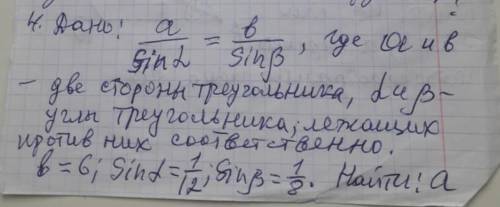 4. Дано: a/Sinα = b/Sinβ, где a и b
- две стороны треугольника, α и β -
углы треугольника, лежащих
против них соответственно.
b = 6; Sinα = 1/12; Sinβ = 1/8. Найти: a